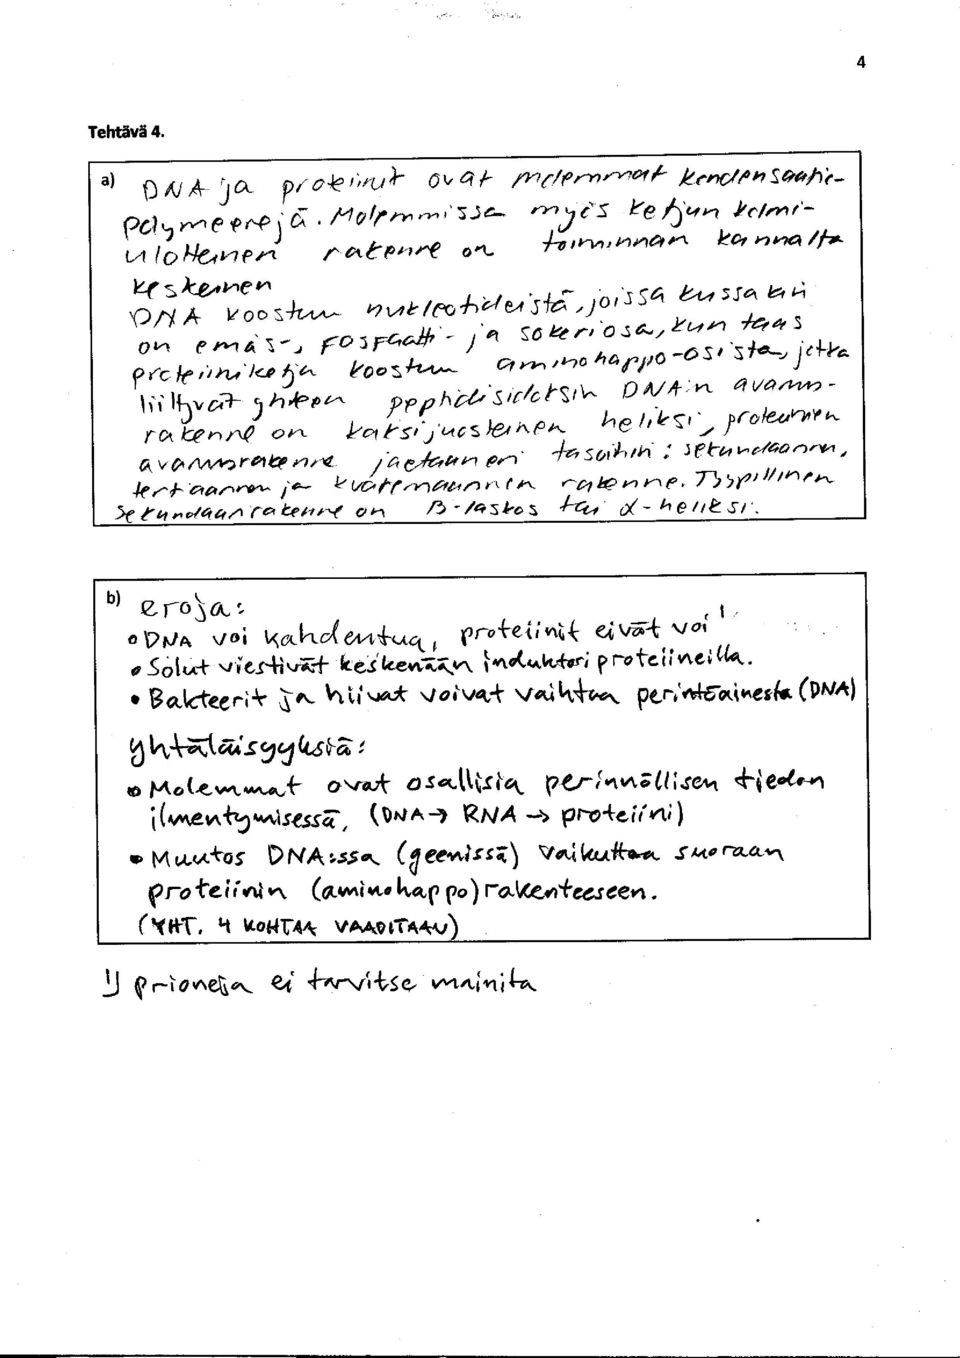 4
Tehtävä 4.
a) DNA ja proteiinit ovat molemmat kondensaatio-
polymeerejä. Molemmissa myös ketjun kolmi-
ulotteinen rakenne on toiminnan kannalta
keskeinen
DNA koostuu nukleotideistä, joissa kussakin
on emäs-, fosfaatti- ja sokeriosa, kun taas
proteiiniketju koostuu aminohappo-osista, jotka
liittyvät yhteen peptidisidoksin DNA:n avaruus-
rakenne on kaksijuosteinen heliksi, proteiinien
avaruusrakenne jaetaan eri tasoihin: sekundaarinen,
tertiaarinen ja kvaternaarinen rakenne. Tyypillinen
sekundaarirakenne on β-laskos tai α-heliksi.
b) eroja:
• DNA voi kahdentua, proteiinit eivät voi 1)
• Solut viestivät keskenään induktoriproteiineilla.
• Bakteerit ja hiivat voivat vaihtaa perintöainesta (DNA)
yhtäläisyyksiä:
• Molemmat ovat osallisia perinnöllisen tiedon
ilmentymisessä, (DNA → RNA → proteiini)
• Muutos DNA:ssa (geenissä) vaikuttaa suoraan
proteiinin (aminohappo) rakenteeseen.
(YHT. 4 KOHTAA VAADITAAN)
1) prioneja ei tarvitse mainita